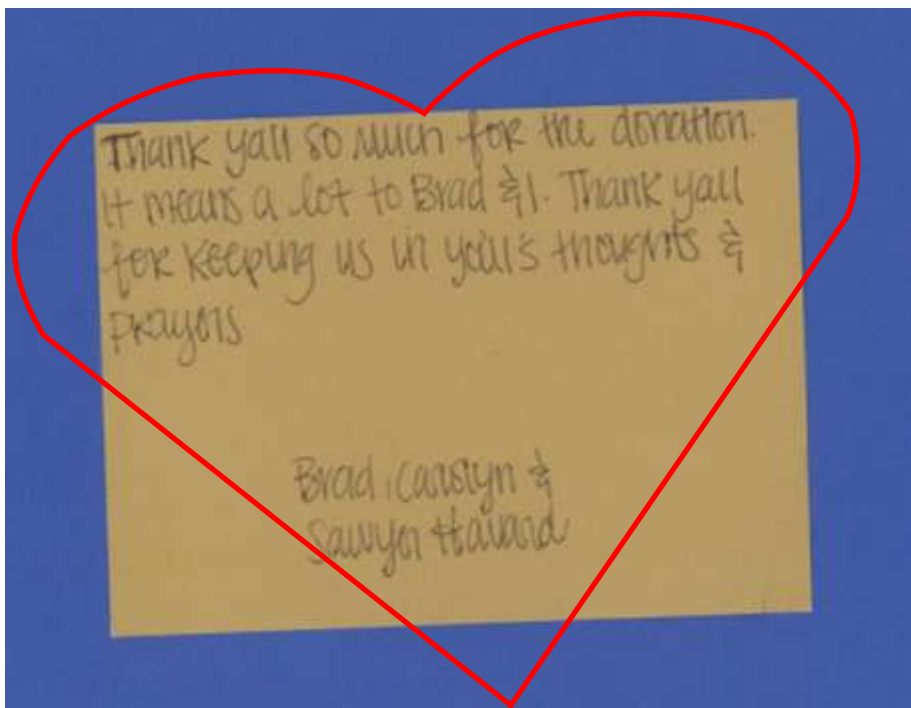 Thank yall so much for the donation.
It means a lot to Brad & I. Thank yall
for keeping us in yall's thoughts &
prayers
Brad, &
Sawyer Havard